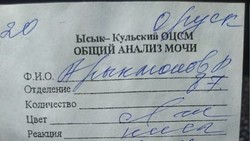 20
Ысык–Кульский ОЦСМ
ОБЩИЙ АНАЛИЗ МОЧИ
Ф.И.О.
Отделение 87.
Количество
Цвет
Реакция кисл